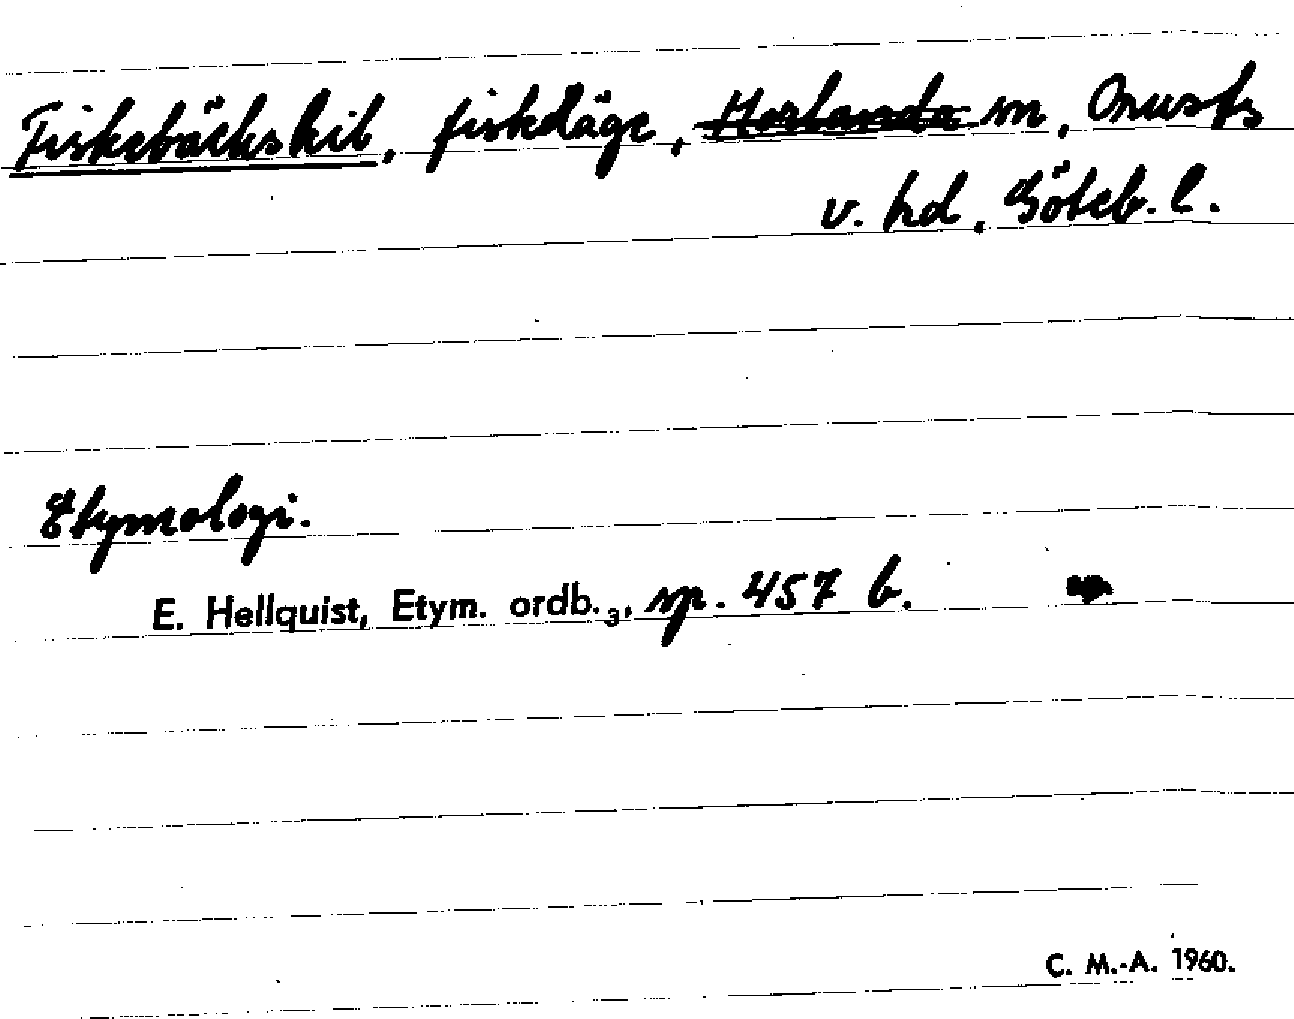 Fiskebäckskil, fiskeläge, Morlanda sn, Orusts
v. hd, Göteb. l.
Etymologi.
E. Hellquist, Etym. ordb.₃, sp. 457 b.
C. M.-A. 1960.